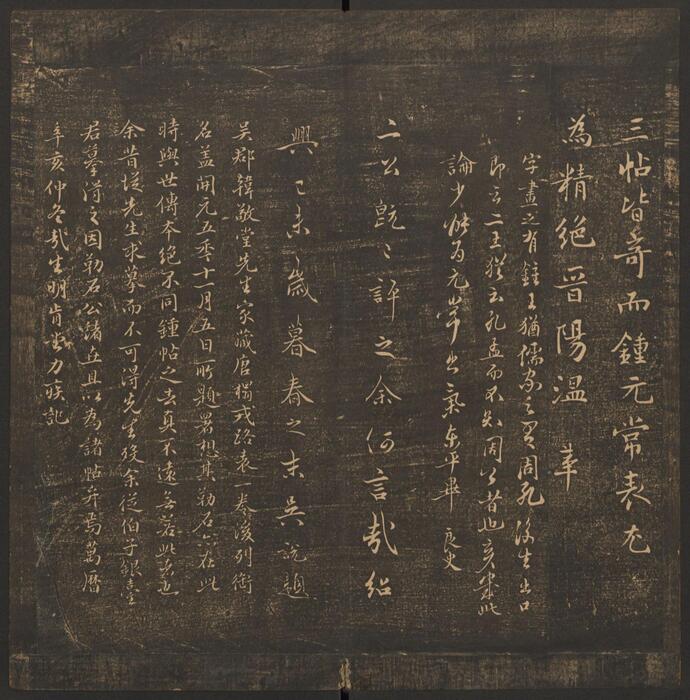 三帖皆奇而鍾元常表尤
為精絕晉陽溫革
字畫之有鍾王猶儒家之有周孔後生出口
即云二王猶云孔孟而不知周公者也意書此
論少佐為元常出氣東平畢良史
二公既已評之余何言哉紹
興己未歲暮春之末吳說題
吳郡韓敬堂先生家藏唐搨戎路表一卷後列銜
名蓋開元五年十一月五日所題署想其勒石亦在此
時與世傳本絕不同鍾帖之去真不遠無若此者也
余昔從先生求摹而不可得先生歿余從伯子銀臺
君摹得之因勒石公諸世且以為諸帖弁焉萬曆
辛亥仲冬哉生明肯堂力疾記